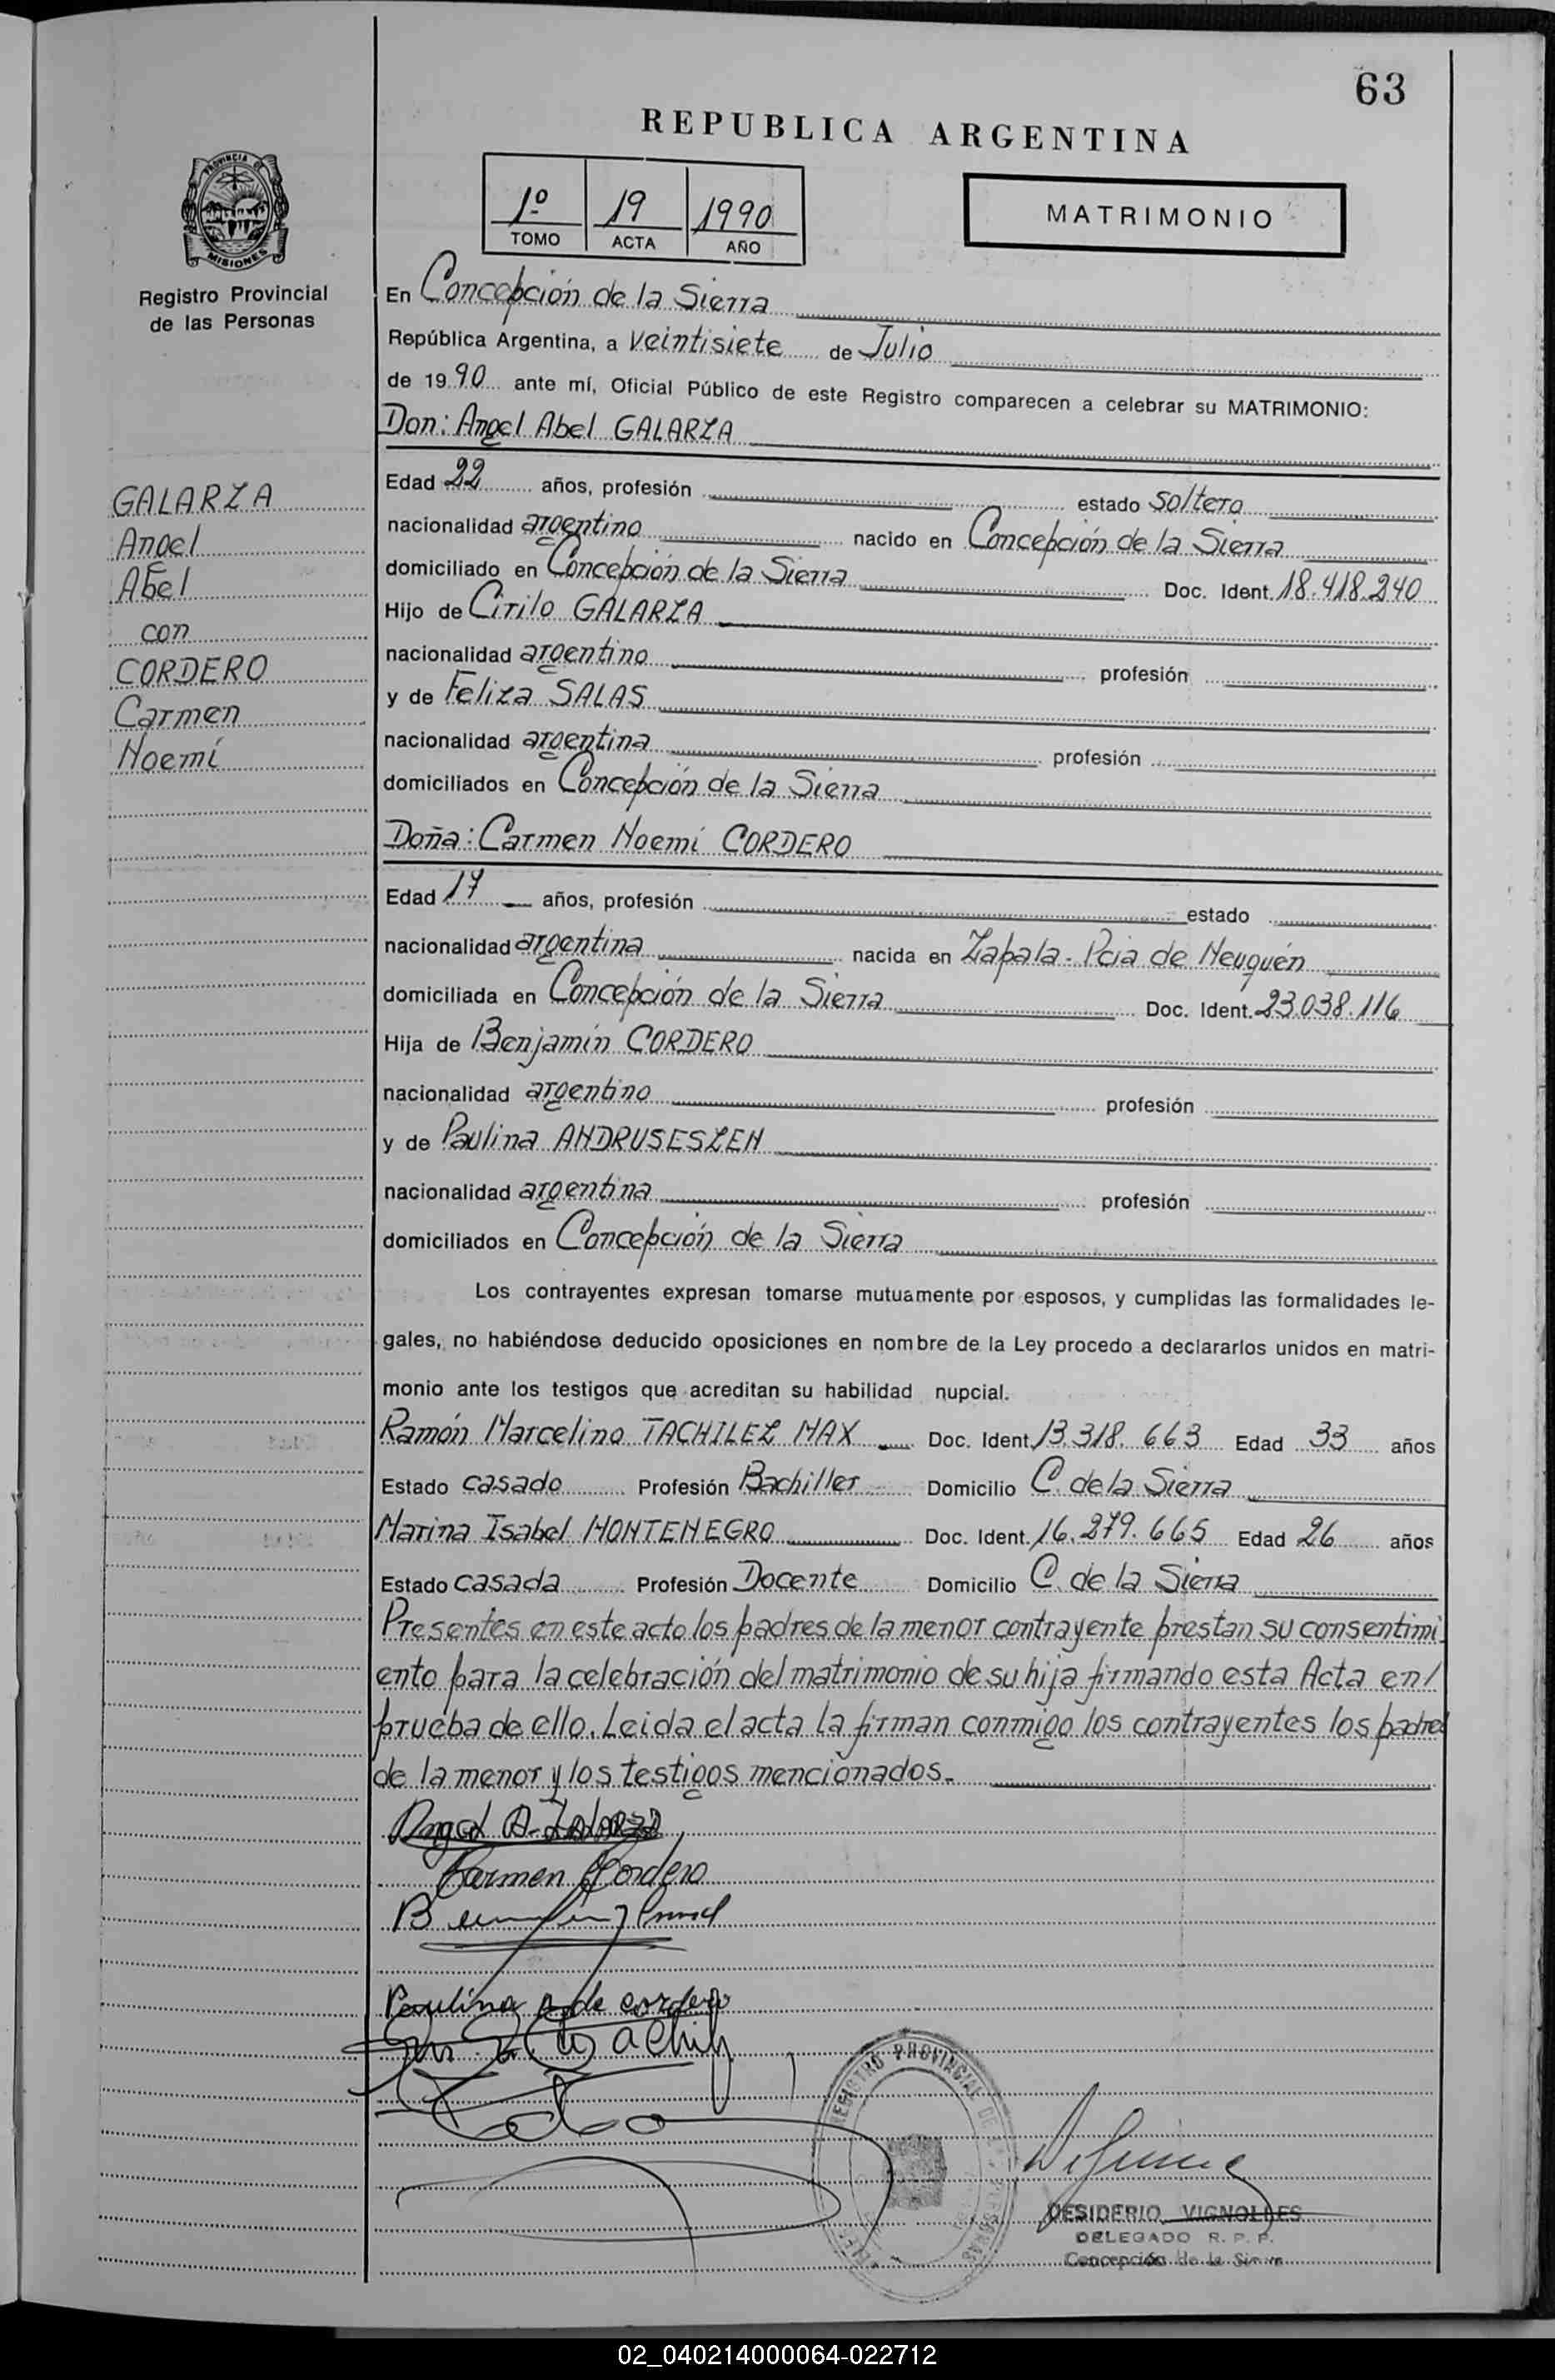 63
REPUBLICA ARGENTINA
1º 19 1990
TOMO ACTA AÑO
MATRIMONIO
PROVINCIA DE
MISIONES
Registro Provincial
de las Personas
En Concepción de la Sierra
República Argentina, a veintisiete de Julio
de 1990 ante mí, Oficial Público de este Registro comparecen a celebrar su MATRIMONIO:
Don: Angel Abel GALARZA
GALARZA
Angel
Abel
con
CORDERO
Carmen
Noemí
Edad 22 años, profesión estado soltero
nacionalidad argentino nacido en Concepción de la Sierra
domiciliado en Concepción de la Sierra Doc. Ident. 18.418.240
Hijo de Cirilo GALARZA
nacionalidad argentino profesión
y de Feliza SALAS
nacionalidad argentina profesión
domiciliados en Concepción de la Sierra
Doña: Carmen Noemí CORDERO
Edad 17 años, profesión estado
nacionalidad argentina nacida en Zapala - Pcia de Neuquén
domiciliada en Concepción de la Sierra Doc. Ident. 23.038.116
Hija de Benjamín CORDERO
nacionalidad argentino profesión
y de Paulina ANDRUSESZEN
nacionalidad argentina profesión
domiciliados en Concepción de la Sierra
Los contrayentes expresan tomarse mutuamente por esposos, y cumplidas las formalidades le-
gales, no habiéndose deducido oposiciones en nombre de la Ley procedo a declararlos unidos en matri-
monio ante los testigos que acreditan su habilidad nupcial.
Ramón Marcelino TACHILEZ MAX Doc. Ident. 13.318.663 Edad 33 años
Estado casado Profesión Bachiller Domicilio C. de la Sierra
Marina Isabel MONTENEGRO Doc. Ident. 16.279.665 Edad 26 años
Estado casada Profesión Docente Domicilio C. de la Sierra
Presentes en este acto los padres de la menor contrayente prestan su consentimi
ento para la celebración del matrimonio de su hija firmando esta Acta en/
prueba de ello. Leida el acta la firman conmigo los contrayentes los padres
de la menor y los testigos mencionados.-
Angel A. Galarza
Carmen Cordero
Paulina A de cordero
REGISTRO PROVINCIAL DE LAS PERSONAS
DESIDERIO VIGNOLLES
DELEGADO R. P. P.
Concepción de la Sierra
02_040214000064-022712